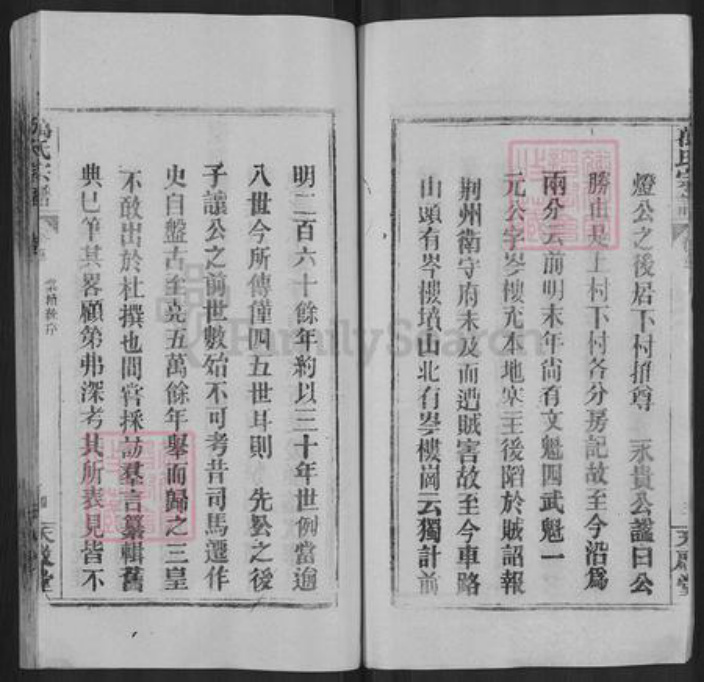 燈公之後居下村推尊 永貴公謚曰公
勝由是上村下村各分房記故至今沿爲
兩分云前明末年尙有文魁四武魁一
元公字岑樓充本地寨主後陷於賊詔報
荆州衛守府未及而遭賊害故至今車路
山頭有岑樓墳山北有岑樓崗云獨計前
明二百六十餘年約以三十年世例當逾
八世今所傳僅四五世耳則 先公之後
子讓公之前世數始不可考昔司馬遷作
史自盤古至堯五萬餘年舉而歸之三皇
不敢出於杜撰也間嘗採訪羣言纂輯舊
典巳筆其畧顧第弗深考其所表見皆不
氏宗譜
FamilySearch